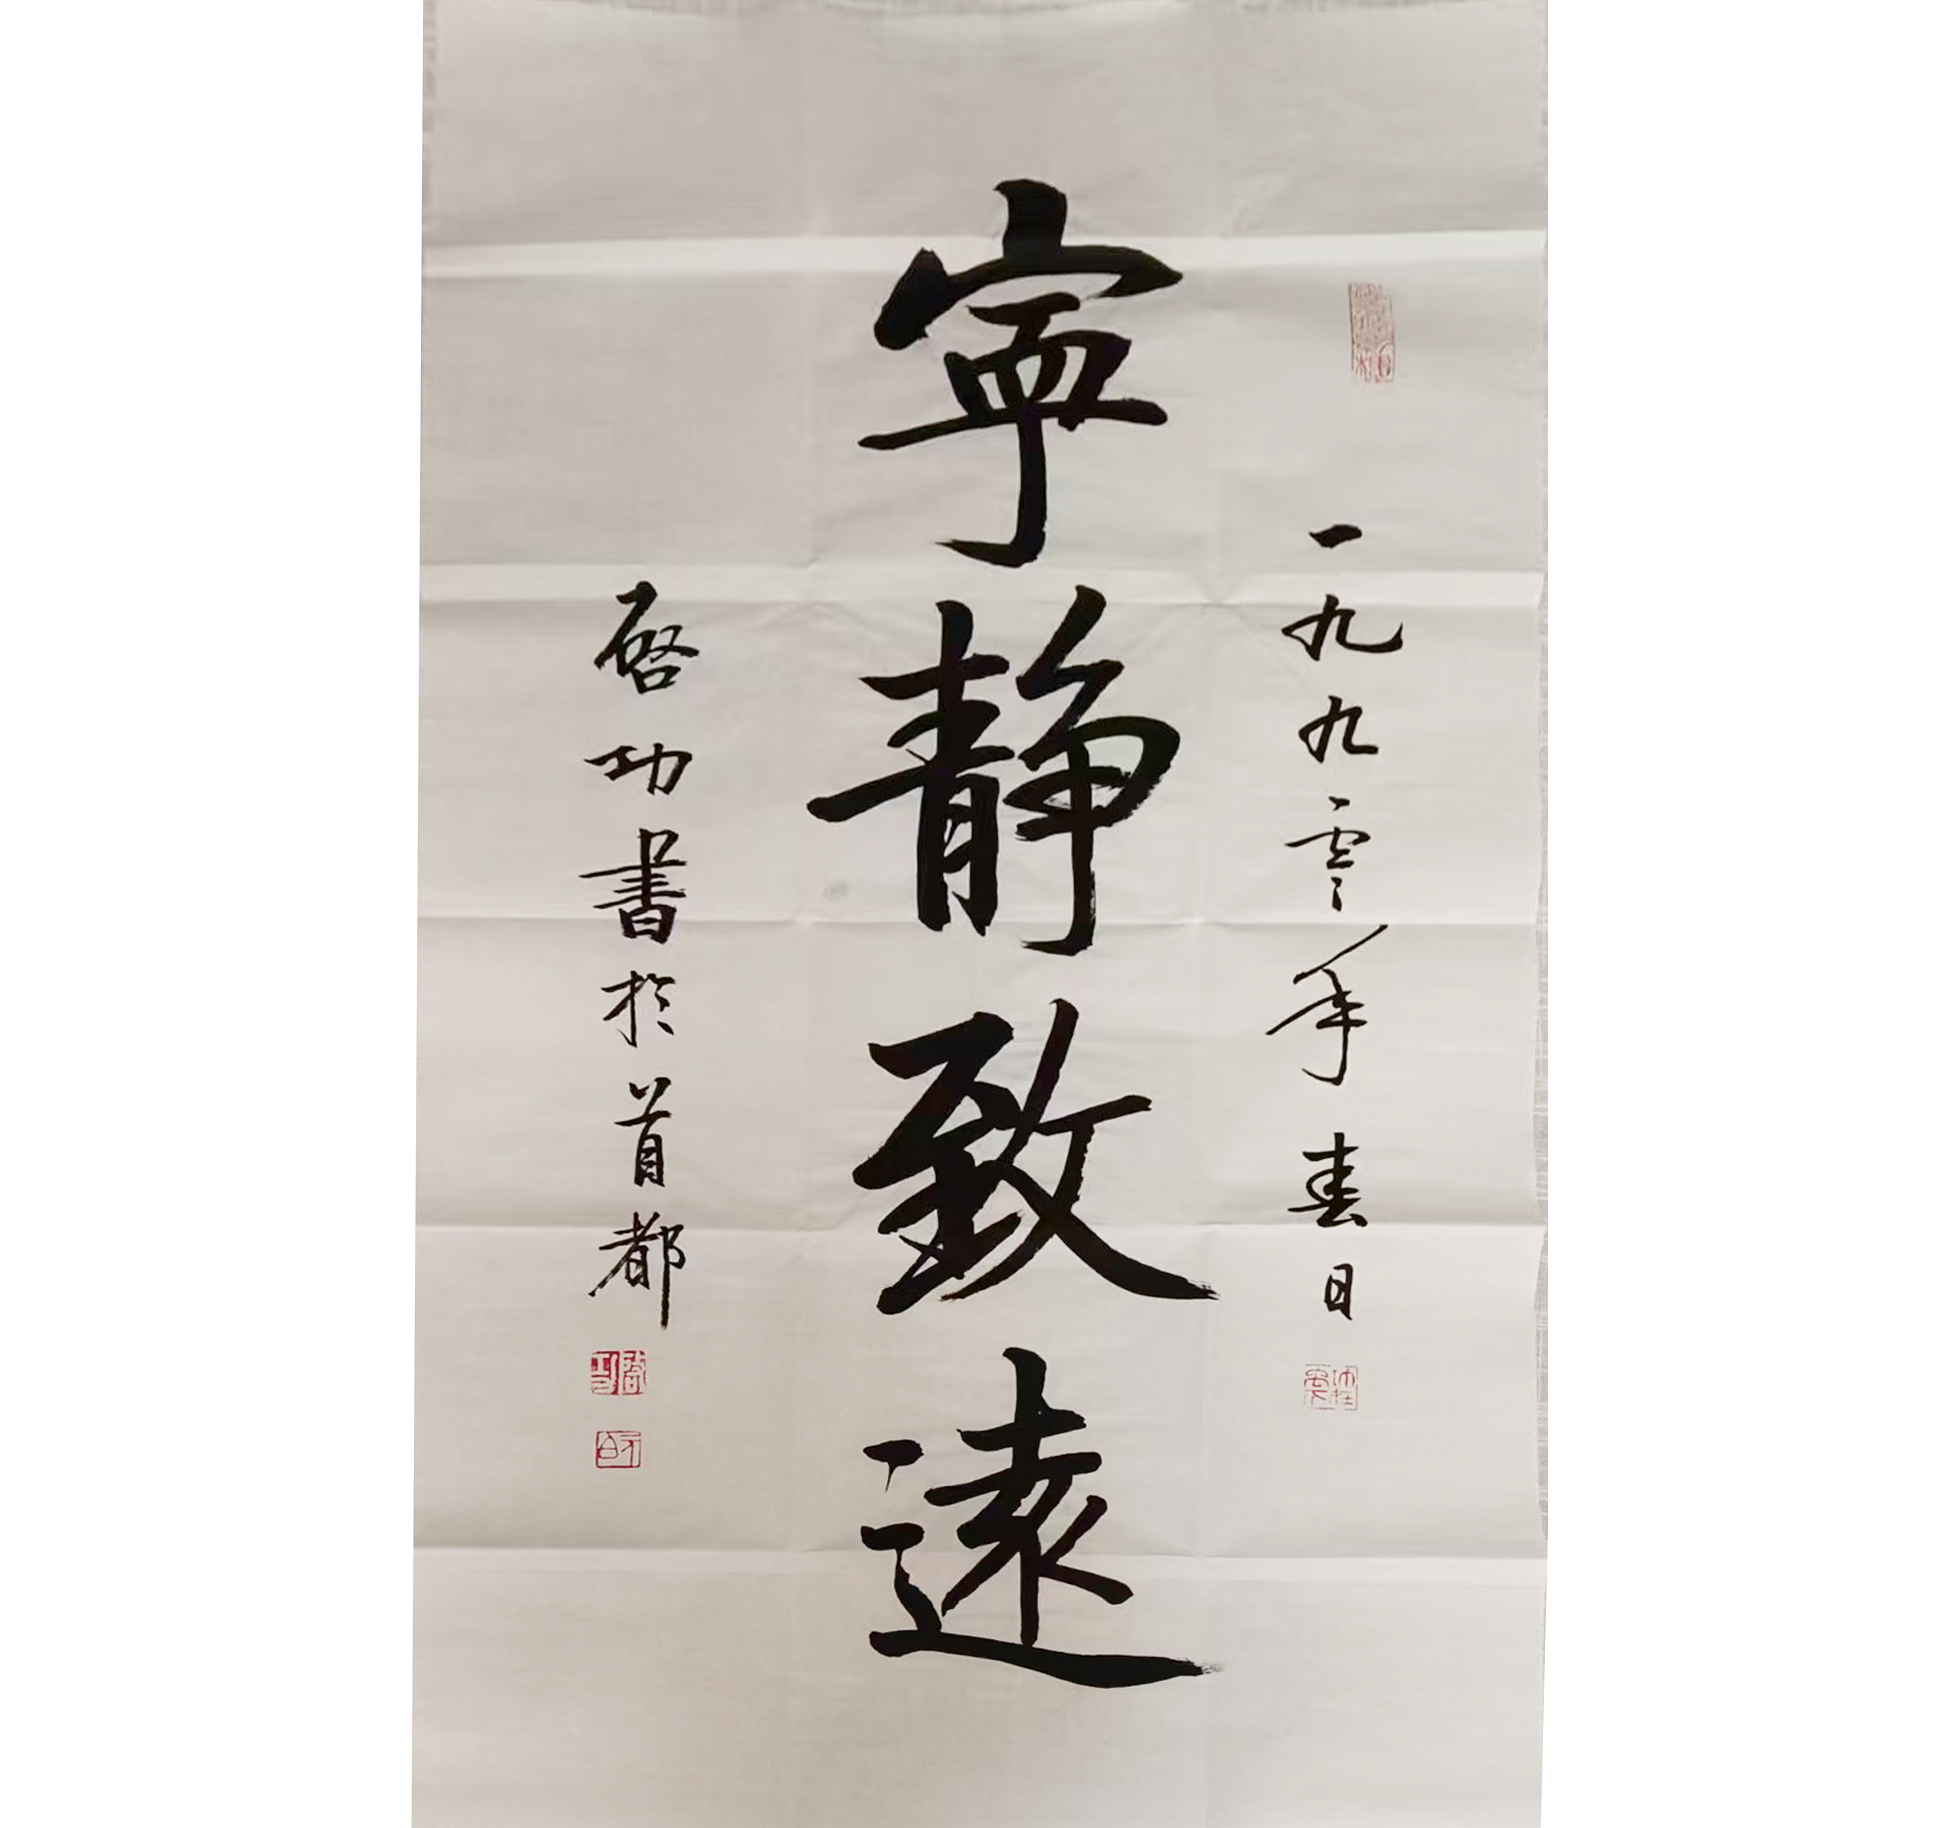 一九九零年春日
寧静致遠
啓功書於首都